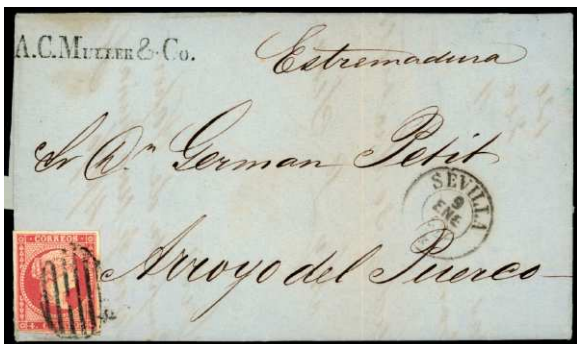 A.C. MULLER & Co.
Estremadura
Sr Dn German Petit
SEVILLA
9
ENE
CORREOS
Arroyo del Puerco